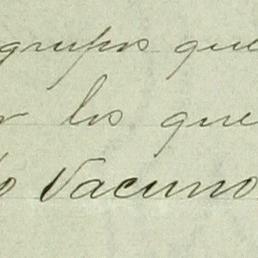 grupos que
r los que
o Vacuno